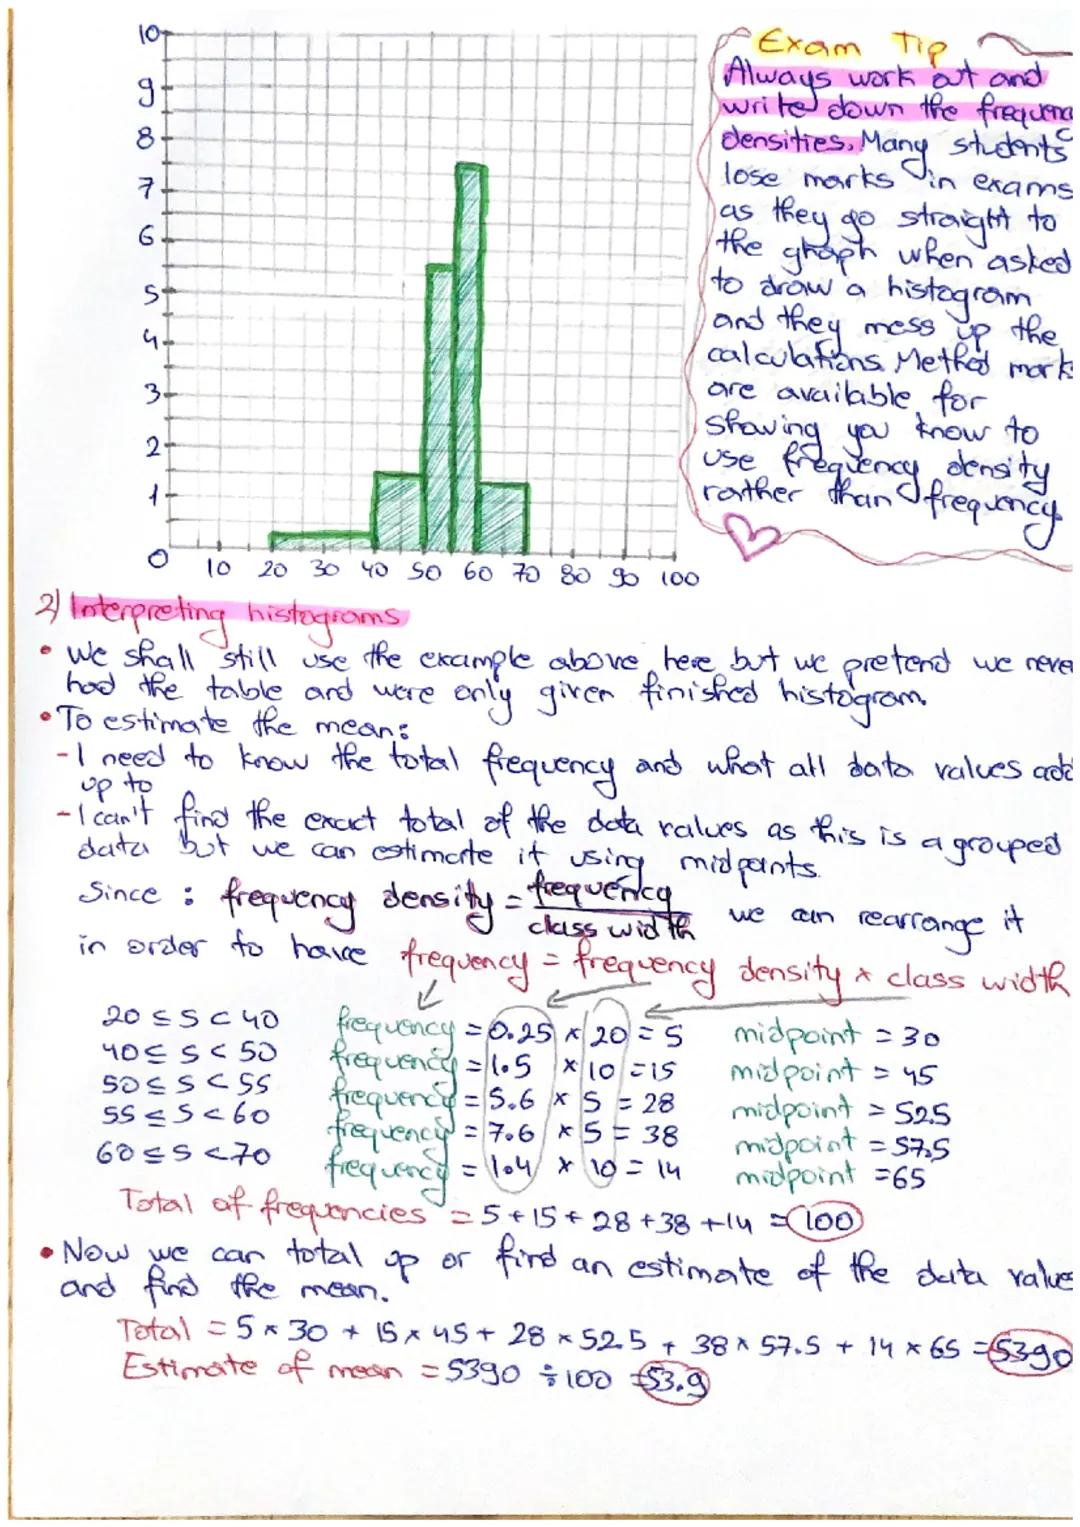 10
9
8
7
6
5
4
3
2
1
0
10 20 30 40 50 60 70 80 90 100
Exam Tip
Always work out and
write down the frequenc
densities. Many students
lose marks in exams
as they go straight to
the graph when asked
to draw a histogram
and they mess up the
calculations. Method mark
are available for
showing you know to
use frequency density
rather than frequency
2) Interpreting histograms
• We shall still use the example above here but we pretend we never
had the table and were only given finished histogram.
• To estimate the mean:
- I need to know the total frequency and what all data values add
up to
- I can't find the exact total of the data values as this is a grouped
data but we can estimate it using midpoints.
Since : frequency density = frequency / class width we can rearrange it
in order to have frequency = frequency density × class width
20 ≤ S < 40 frequency = 0.25 × 20 = 5 midpoint = 30
40 ≤ S < 50 frequency = 1.5 × 10 = 15 midpoint = 45
50 ≤ S < 55 frequency = 5.6 × 5 = 28 midpoint = 52.5
55 ≤ S < 60 frequency = 7.6 × 5 = 38 midpoint = 57.5
60 ≤ S < 70 frequency = 1.4 × 10 = 14 midpoint = 65
Total of frequencies = 5 + 15 + 28 + 38 + 14 = 100
• Now we can total up or find an estimate of the data values
and find the mean.
Total = 5 × 30 + 15 × 45 + 28 × 52.5 + 38 × 57.5 + 14 × 65 = 5390
Estimate of mean = 5390 ÷ 100 = 53.9